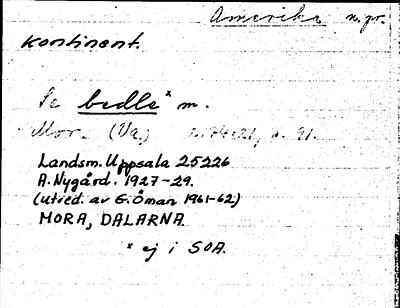 Amerika n. pr.
kontinent.
Se bedla* m.
Mor. (Va.)
Landsm. Uppsala 25226
A. Nygård. 1927-29.
(utred. av G. Öman 1961-62)
MORA, DALARNA.
* ej i SOA.